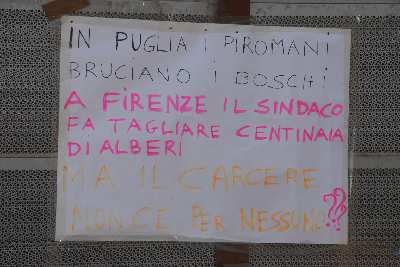 IN PUGLIA I PIROMANI
BRUCIANO I BOSCHI
A FIRENZE IL SINDACO
FA TAGLIARE CENTINAIA
DI ALBERI
MA IL CARCERE
NON CE PER NESSUNO??